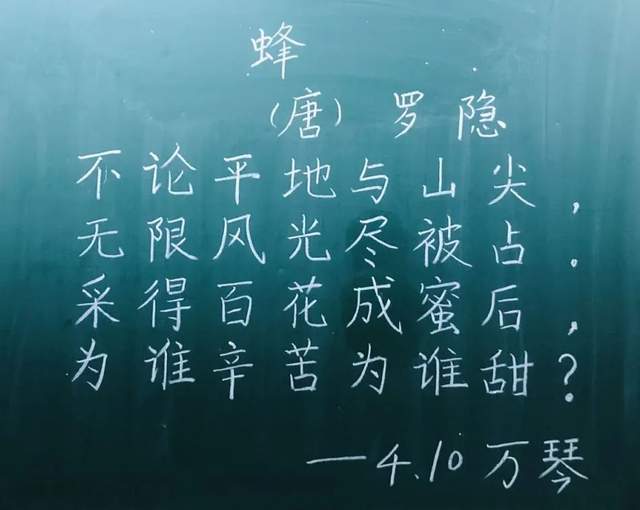 蜂
(唐) 罗隐
不论平地与山尖,
无限风光尽被占.
采得百花成蜜后,
为谁辛苦为谁甜?
—4.10 万琴